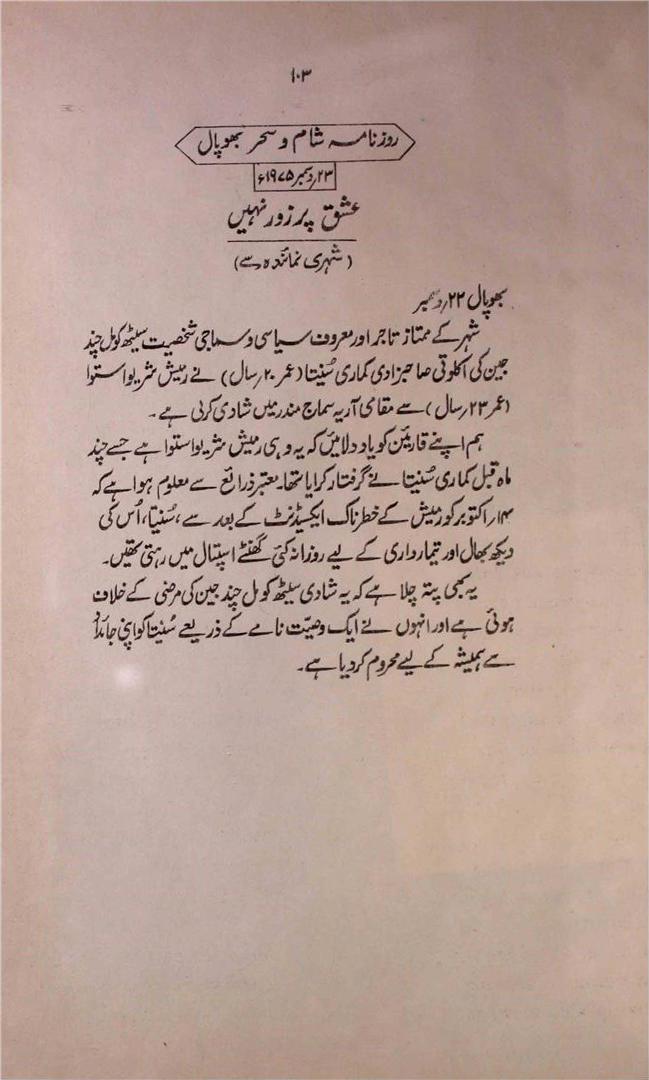 ۱۰۳
روزنامہ شام و سحر بھوپال
۲۳؍دسمبر ۱۹۷۵ء
عشق پر زور نہیں
(شہری نمائندہ سے)
بھوپال ۲۲؍دسمبر
شہر کے ممتاز تاجر اور معروف سیاسی و سماجی شخصیت سیٹھ کومل چند
جین کی اکلوتی صاحبزادی کماری سُنیتا (عمر ۲۰؍سال) نے رمیش شریواستوا
(عمر ۲۳؍سال) سے مقامی آریہ سماج مندر میں شادی کرلی ہے۔
ہم اپنے قارئین کو یاد دلائیں کہ یہ وہی رمیش شریواستوا ہے جسے چند
ماہ قبل کماری سُنیتا نے گرفتار کرایا تھا۔ معتبر ذرائع سے معلوم ہوا ہے کہ
۱۴؍اکتوبر کو رمیش کے خطرناک ایکسیڈنٹ کے بعد سے، سُنیتا، اُس کی
دیکھ بھال اور تیمارداری کے لیے روزانہ کئی گھنٹے اسپتال میں رہتی تھیں۔
یہ بھی پتہ چلا ہے کہ یہ شادی سیٹھ کومل چند جین کی مرضی کے خلاف
ہوئی ہے اور انہوں نے ایک وصیّت نامے کے ذریعے سُنیتا کو اپنی جائداد
سے ہمیشہ کے لیے محروم کردیا ہے۔